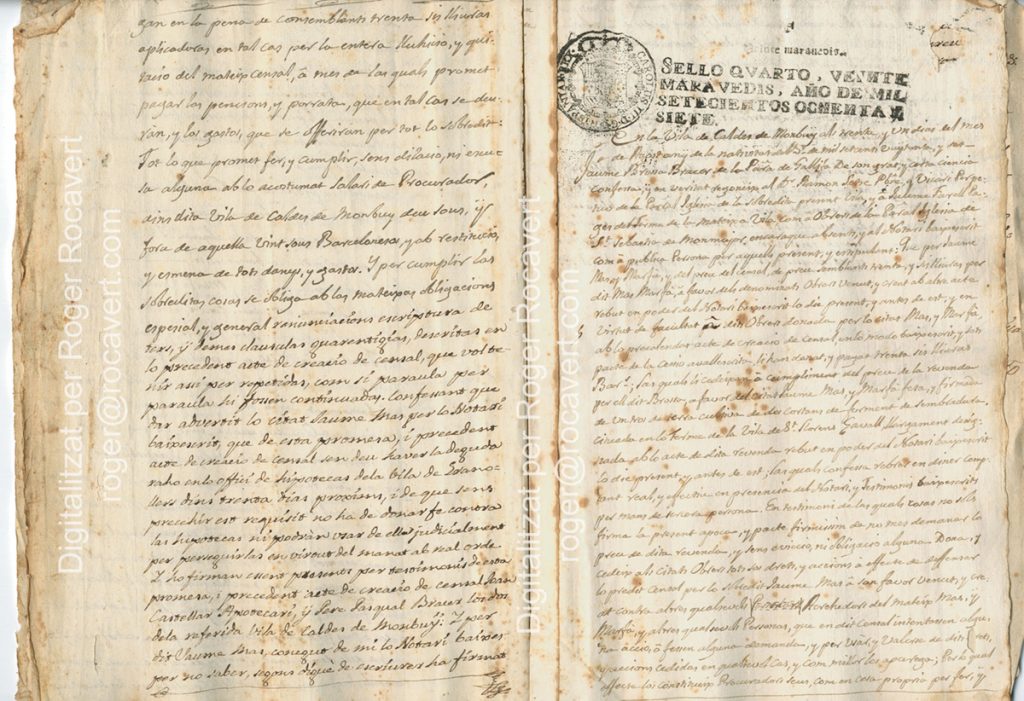 zan en la pena de consemblants trenta sis lliuras
aplicadoras en tal cas per la entera lluhicio, y qui-
tacio del mateix censal, â mes de las quals promet
pagar las pencions, y porrata, que en tal cas se deu-
ran, y los gastos, que se offeriran per tot lo sobredit.
Tot lo que promet fer, y cumplir, sens dilacio, ni escu-
sa alguna ab lo acostumat salari de Procurador,
dins dita Vila de Caldes de Monbuy deu sous, y
fora de aquella vint sous Barcelonesos, y ab restitucio,
y esmena de tots danys, y gastos. Y per cumplir las
sobreditas cosas se obliga ab las mateixas obligacions
espesial, y general renunciacions escriptura de
ters, y demes clausulas quarentigias, descritas en
lo precedent acte de creacio de censal, que vol te-
nir assi per repetidas, com si paraula per
paraula si fossen continuadas. Confesant que-
dar advertit lo citat Jaume Mas per lo Notari
baixescrit, que de esta promesa, i precedent
acte de creacio de censal sen deu haver la deguda
raho en lo offici de hipotecas de la Vila de Grano-
llers dins trenta dias proxims, i de que sens
precehir est requisit no ha de donar fe contra
las hipotecas ni podran usar de ella judicialment
per perseguirlas en virtut del manat ab real orde
Y ho firman essent presents per testimonis de esta
promesa, i precedent acte de creacio de censal Joan
Castellar Apotecari, y Pere Pasqual Bracer los dos
de la referida Vila de Caldes de Monbuy: Y per
dit Jaume Mas, conegut de mi lo Notari baixes
per no saber, segons digué de escriurer ha firmat
Veinte maravedis.
SELLO QVARTO, VEINTE
MARAVEDIS, AÑO DE MIL
SETECIENTOS OCHENTA Y
SIETE.
En la Vila de Caldes de Monbuy als trenta, y un dias del mes
de de la nativitat del Sr. de mil setcents vuytanta, y set
Jaume Brossa Bracer de la Parra. de Gallifa De son grat, y certa ciencia
Confessa, y en veritat regoneix al Dr. Ramon Pbre, y Vicari Perpe-
tuo de la Parral Iglesia de la Sobredita present Vila, y â Jaume Farell Pa-
ges del terme de la mateixa Vila com â Obrers de la Parral Iglesia de
St. Sebastia de Monmajor, encaraque absents, y al Notari baixescrit
com â publica Persona per aquells present, y estipulant: Que per Jaume
Mas, y Marfà, y del preu del Censal, de preu semblants trenta, y sis lliuras per
dit Mas Marfà, â favor dels denominats Obrers Venut, y creat ab altre acte
rebut en poder del Notari baixescrit lo dia present, y antes de est, y en
Virtut de facultat a dits Obrers donada per lo citat Mas, y Marfà,
ab lo precalendat acte de creacio de Censal, en lo modo baixescrit, y sots
pacte de la cessio avallescrita, li han donat, y pagat trenta sis lliuras
Barsa., las quals li cedeixen â cumpliment del preu de la revenda
per ell dit Brossa, â favor del citat Jaume Mas, y Marfà feta, y firmada
de Un tros de terra cultiva de dos cortans de forment de sembradura,
cituada en lo terme de la Vila de St. Llorens Savall llargament desig-
nada ab lo acte de dita revenda rebut en poder del Notari baixescrit
lo dia present, y antes de est, las quals confessa rebrer en diner comp-
tant real, y effectiu en presencia del Notari, y Testimonis baixescrits
per mans de tercera persona. En testimoni de las quals cosas no sols
firma la present apoca, y pacte firmissim de no mes demanar lo
preu de dita revenda, y sens eviccio, ni obligacio alguna Dona, y
cedeix als citats Obrers tots sos drets, y accions â effecte de deffensar
lo predit Censal per lo Sobredit Jaume Mas â son favor Venut, y cre-
at contra altres qualsevols Acrehedors del mateix Mas, y
Marfà, y altres qualsevols Personas, que en dit Censal intentassen algu-
na accio, â fessen alguna demanda, y per usar, y Valerse de dits drets,
y accions cedidas en qualsevol cas, y com millor los aparega; Per lo qual
effecte los constitueix Procuradors seus, com en cosa propria per fer, y
Digitalitzat per Roger Rocavert
roger@rocavert.com
Digitalitzat per Roger Rocavert
roger@rocavert.com